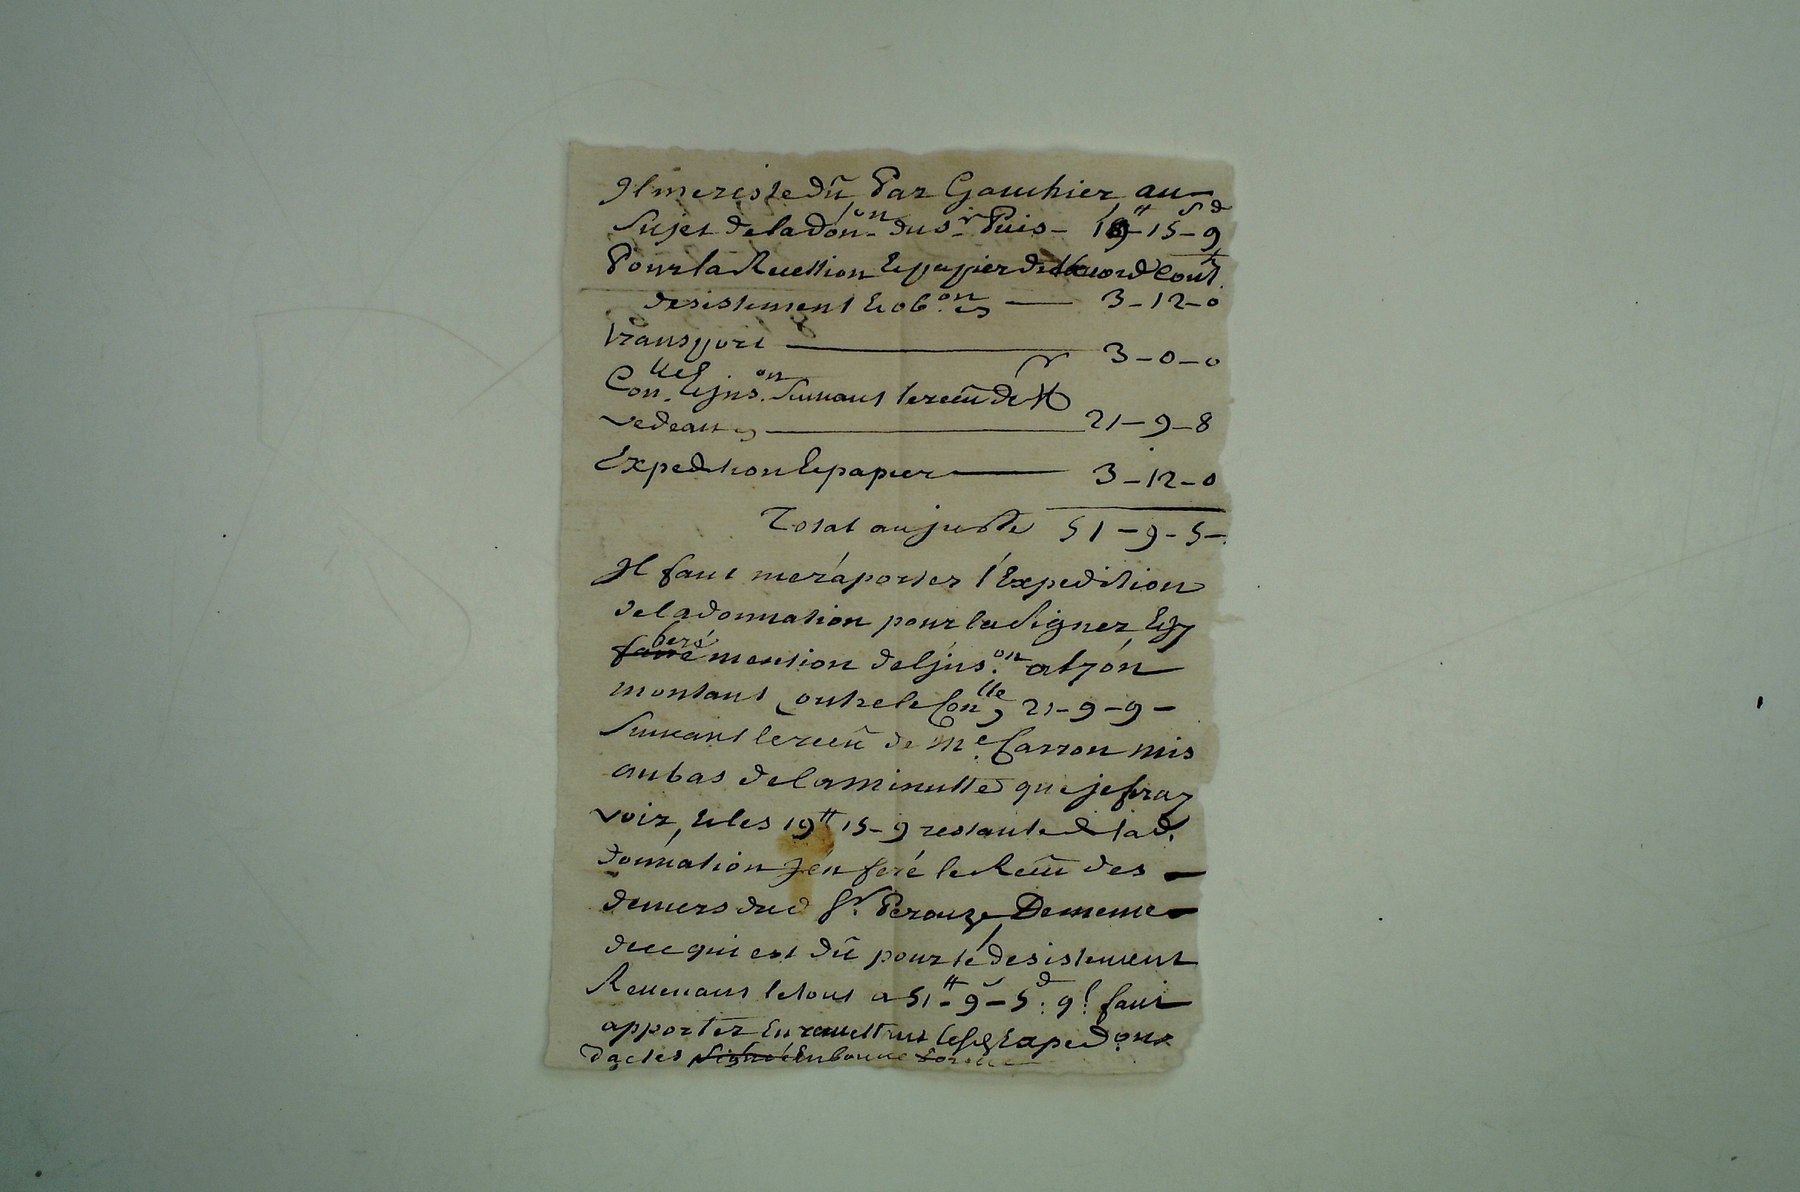 Il me reste dû Par Gauthier au
Sujet de la don.on du Sr Puis - 19tt 15s - 9d
Pour la Recettion Et papier de accord Cont.
desistement Et ob.on es — 3 - 12 - 0
transport — 3 - 0 - 0
Con.lle Et jns.on Suivant le receu de Mr
vedeau — 21 - 9 - 8
Expedition Et papier — 3 - 12 - 0
Total au juste 51 - 9 - 5 -
Il faut me raporter l'Expedition
de la donnation pour la Signer Et y
faire feré mention de l'jns.on alzon
montant outre le Con.lle 21 - 9 - 9 -
Suivant le receu de Me Carron mis
au bas de la minutte que je feray
voir, Et les 19tt 15 - 9 restant de lad.
donnation J'en feré le Receu des
deniers dud Sr. Perouze De meme
de ce qui est dû pour le desistement
Revenant le tout a 51tt - 9s - 5d: Il faut
apporter En remettant les Expedons
d'actes Signé En bonne forme